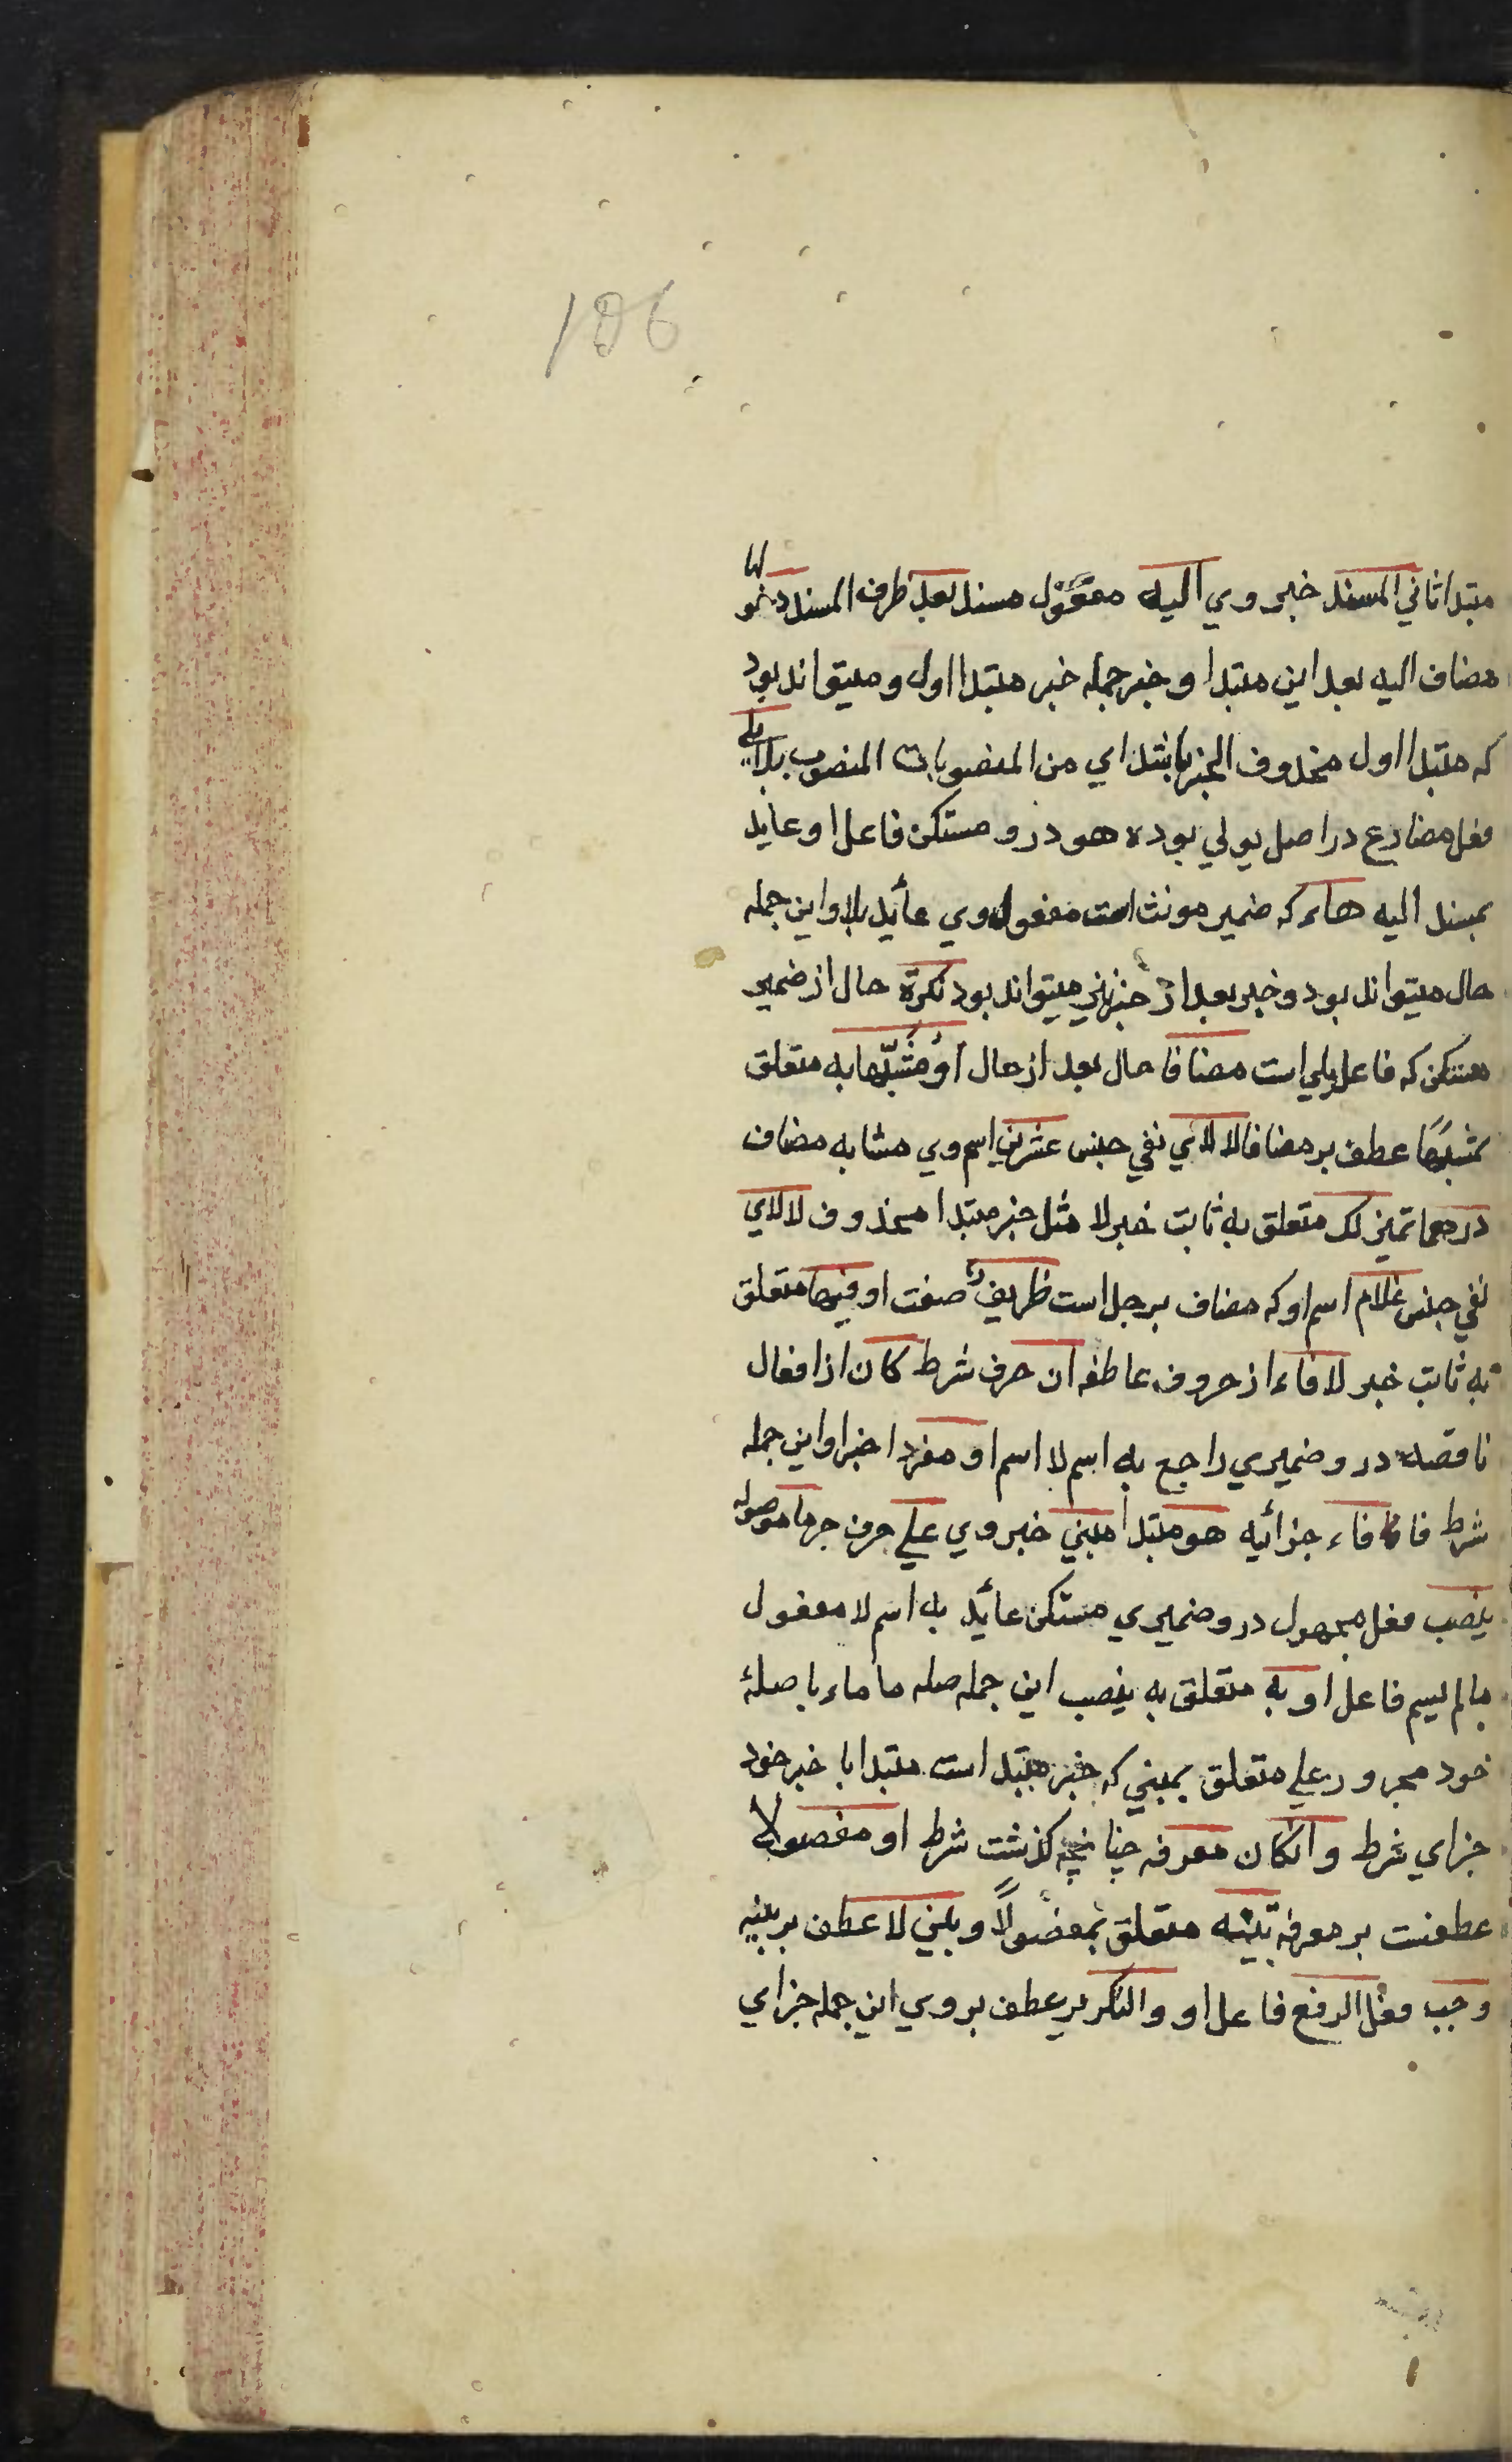 106
مبتدا ثاني المسند خبر وي اليه مفعول مسند بعد ظرف المسند دخولها
مضاف اليه بعد اين مبتدا و خبر جمله خبر مبتدا اول و ميتواند بود
كه مبتدا اول محذوف الخبر يا بتداي من المنصوبات المنصوب بلا يلي
فعل مضارع در اصل يولي بوده هو درو مستكن فاعل او عايد
بمسند اليه هاء كه ضمير مونث است مفعول وي عائد بلا و اين جمله
حال ميتواند بود و خبر بعد از خبر نيز ميتواند بود نكرة حال از ضمير
مستكن كه فاعل يلي است مضافا حال بعد از حال او مشبّها به متعلق
بمشبها عطف بر مضافا لا لاي نفي جنس عشرين اسم وي مشابه مضاف
درهما تميز لك متعلق به ثابت خبر لا مثل خبر مبتدا محذوف لا لاي
نفي جنس غلام اسم او كه مضاف برجل است ظريف صفت او فيها متعلق
به ثابت خبر لا فاء از حروف عاطفه ان حرف شرط كان از افعال
ناقصه درو ضميري راجع به اسم لا اسم او مفردا خبر او اين جمله
شرط فا فاء جزائيه هو مبتدا مبني خبر وي علي حرف جر ما موصوله
ينصب فعل مجهول درو ضميري مستكن عائد به اسم لا مفعول
مالم يسم فاعل او به متعلق به ينصب اين جمله صله ما ماء با صلهٔ
خود مجرور علي متعلق بمبني كه خبر مبتدا است مبتدا با خبر خود
جزاي شرط و ان كان معرفه چنانچه كذشت شرط او مفصولا
عطفست بر معرفه بينه متعلق بمفصولاً و بين لا عطف بر بينه
وجب فعل الرفع فاعل او و التكرير عطف بر وي اين جمله جزاي